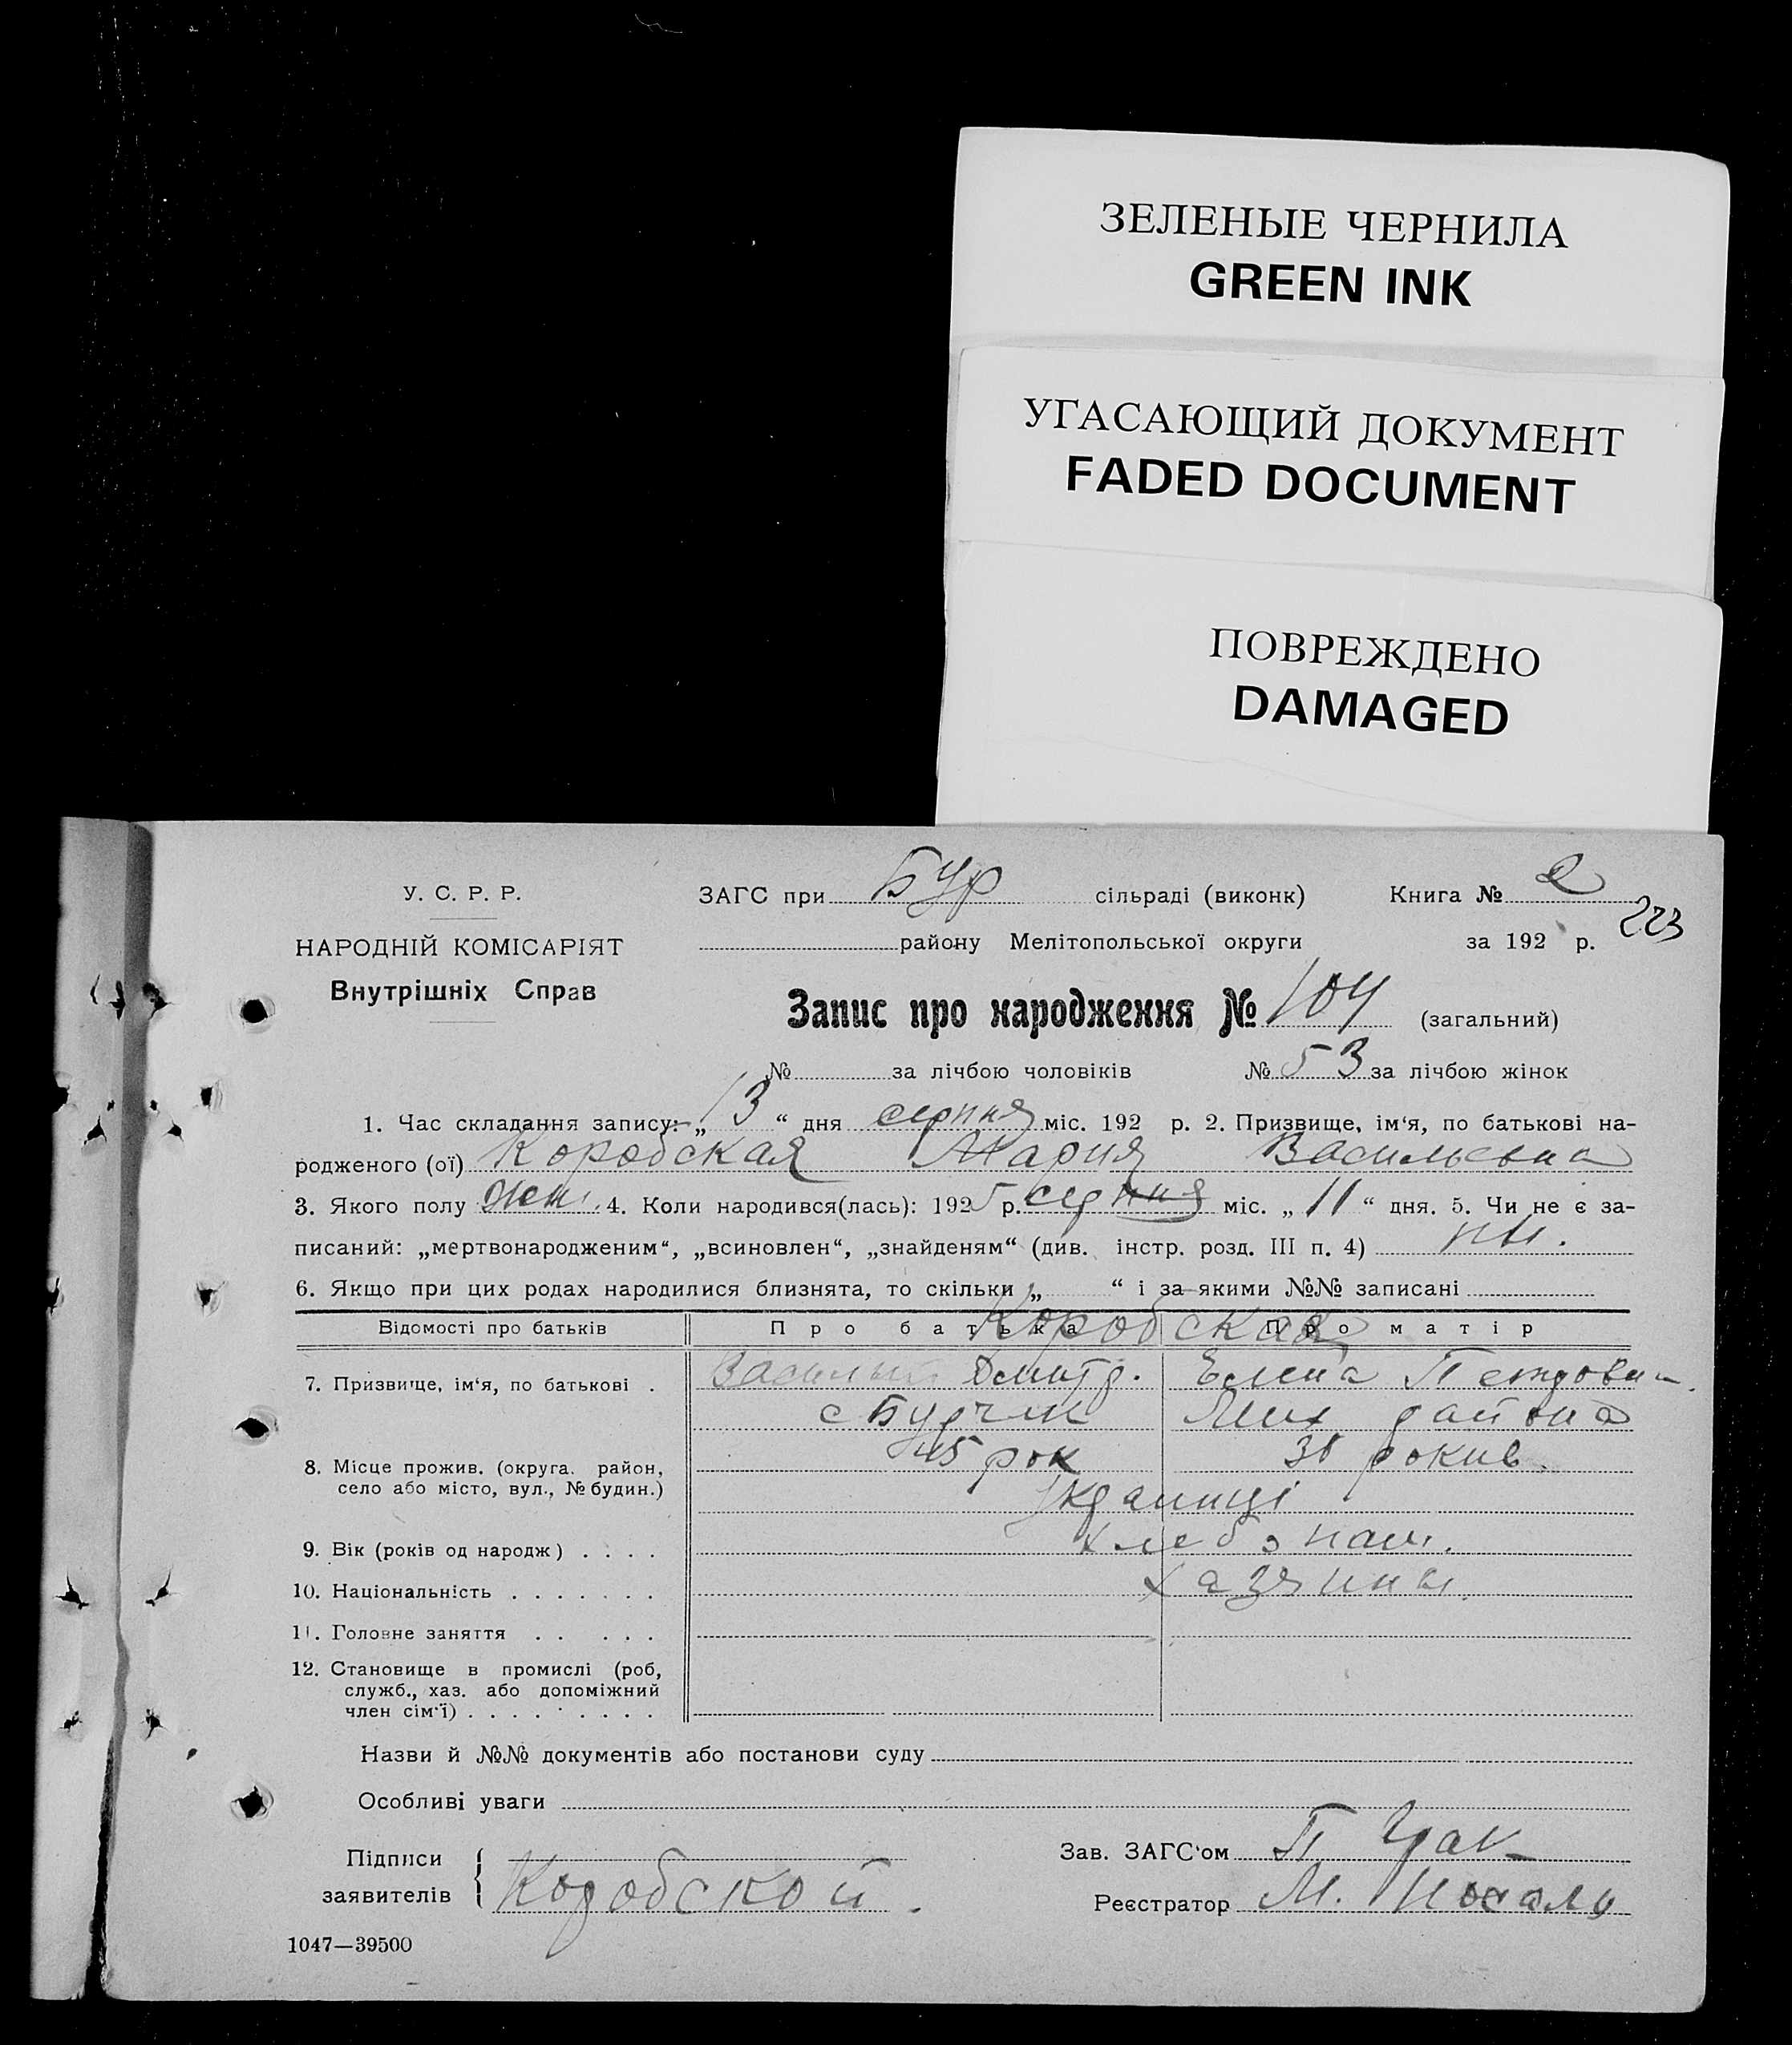 ЗЕЛЕНЫЕ ЧЕРНИЛА
GREEN INK
УГАСАЮЩИЙ ДОКУМЕНТ
FADED DOCUMENT
ПОВРЕЖДЕНО
DAMAGED
У. С. Р. Р.
НАРОДНІЙ КОМІСАРІЯТ
Внутрішніх Справ
ЗАГС при Бур сільраді (виконк) Книга № 2
223
району Мелітопольської округи за 192 р.
Запис про народження № 104 (загальний)
№ за лічбою чоловіків № 53 за лічбою жінок
1. Час складання запису: „ 13 “ дня серпня міс. 192 р. 2. Призвище, ім‘я, по батькові на-
родженого (ої) Коробская Мария Васильевна
3. Якого полу жен. 4. Коли народився(лась): 1925 р. серпня міс. „ 11 “ дня. 5. Чи не є за-
писаний: „мертвонародженим“, „всиновлен“, „знайденям“ (див. інстр. розд. III п. 4)
6. Якщо при цих родах народилися близнята, то скільки „ “ і за якими №№ записані
Коробская
Відомості про батьків Про батька Про матір
7. Призвище, ім‘я, по батькові .
Василий Дмитр. Елена Петровн
с Бурчак Мих района
8. Місце прожив. (округа. район,
село або місто, вул., № будин.)
45 рок рокив.
Украинці
9. Вік (років од народж) . . . .
хлебопаш.
10. Національність . . . . . . .
хазяины
11. Головне заняття . . . . .
12. Становище в промислі (роб,
служб., хаз. або допоміжний
член сім‘ї) . . . . . . . . .
Назви й №№ документів або постанови суду
Особливі уваги
Підписи
заявителів
Коробской
Зав. ЗАГС‘ом П
Реєстратор М.
1047—39500